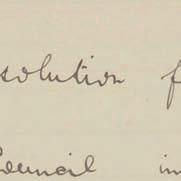 solution f
Council im